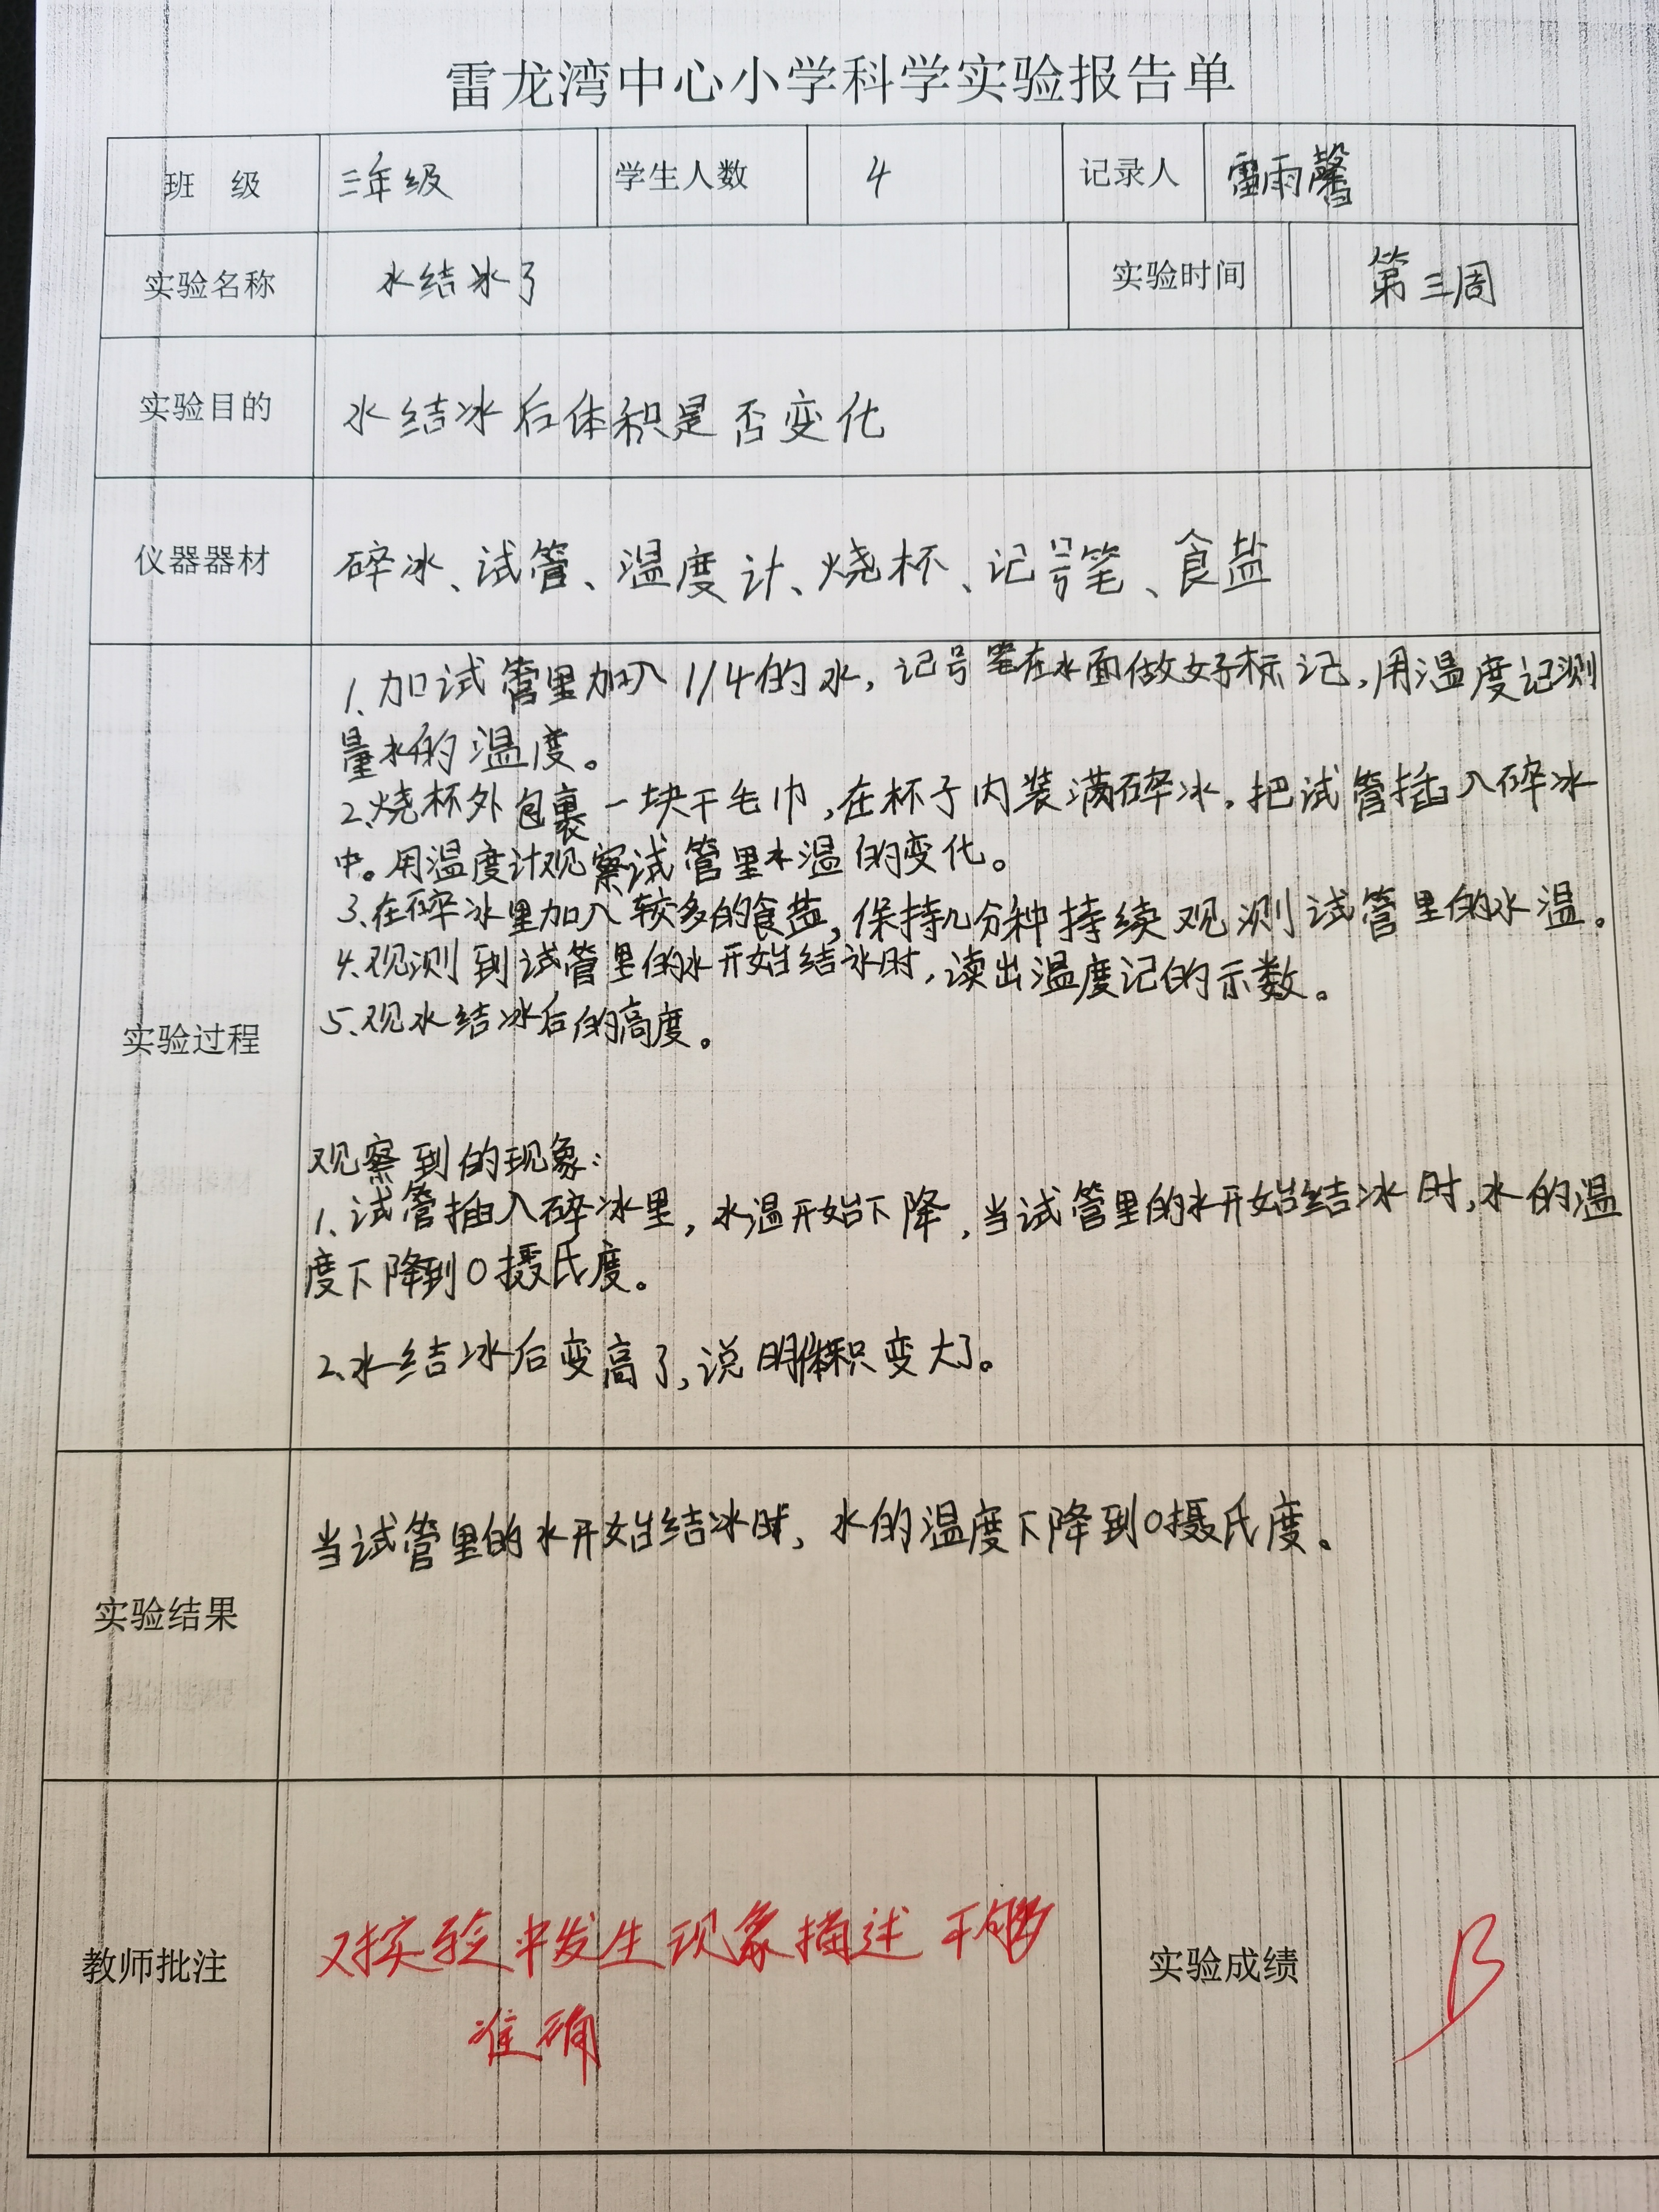 雷龙湾中心小学科学实验报告单
班 级 三年级 学生人数 4 记录人 雷雨馨
实验名称 水结冰了 实验时间 第三周
实验目的 水结冰后体积是否变化
仪器器材 碎冰、试管、温度计、烧杯、记号笔、食盐
实验过程
1.加试管里加入1/4的水,记号笔在水面做好标记,用温度记测
量水的温度。
2.烧杯外包裹一块干毛巾,在杯子内装满碎冰,把试管插入碎冰
中。用温度计观察试管里水温的变化。
3.在碎冰里加入较多的食盐,保持几分种持续观测试管里的水温。
4.观测到试管里的水开始结冰时,读出温度记的示数。
5.观水结冰后的高度。
观察到的现象:
1.试管插入碎冰里,水温开始下降,当试管里的水开始结冰时,水的温
度下降到0摄氏度。
2.水结冰后变高了,说明体积变大了。
实验结果 当试管里的水开始结冰时,水的温度下降到0摄氏度。
教师批注 对实验中发生现象描述不够
准确
实验成绩 B